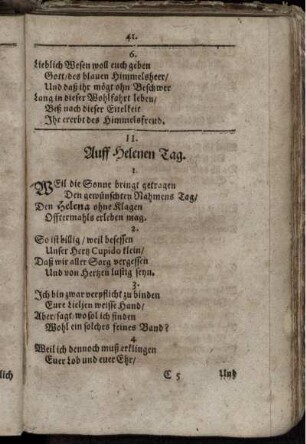 41.
6.
Lieblich Wesen woll euch geben
Gott/des blauen Himmelsheer/
Und daß ihr mögt ohn Beschwer
Lang in dieser Wohlfahrt leben/
Biß nach dieser Eitelkeit
Ihr ererbt des Himmelsfreud.
II.
Auff Helenen Tag.
1.
WEil die Sonne bringt getragen
Den gewünschten Nahmens Tag/
Den Helena ohne Klagen
Offtermahls erleben mag.
2.
So ist billig/ weil besessen
Unser Hertz Cupido klein/
Daß wir aller Sorg vergessen
Und von Hertzen lustig seyn.
3.
Ich bin zwar verpflicht zu binden
Eure Lieljen weisse Hand/
Aber/sagt/ wo sol ich finden
Wohl ein solches feines Band?
4.
Weil ich dennoch muß erklingen
Euer Lob und euer Ehr/
C 5 Und
lich